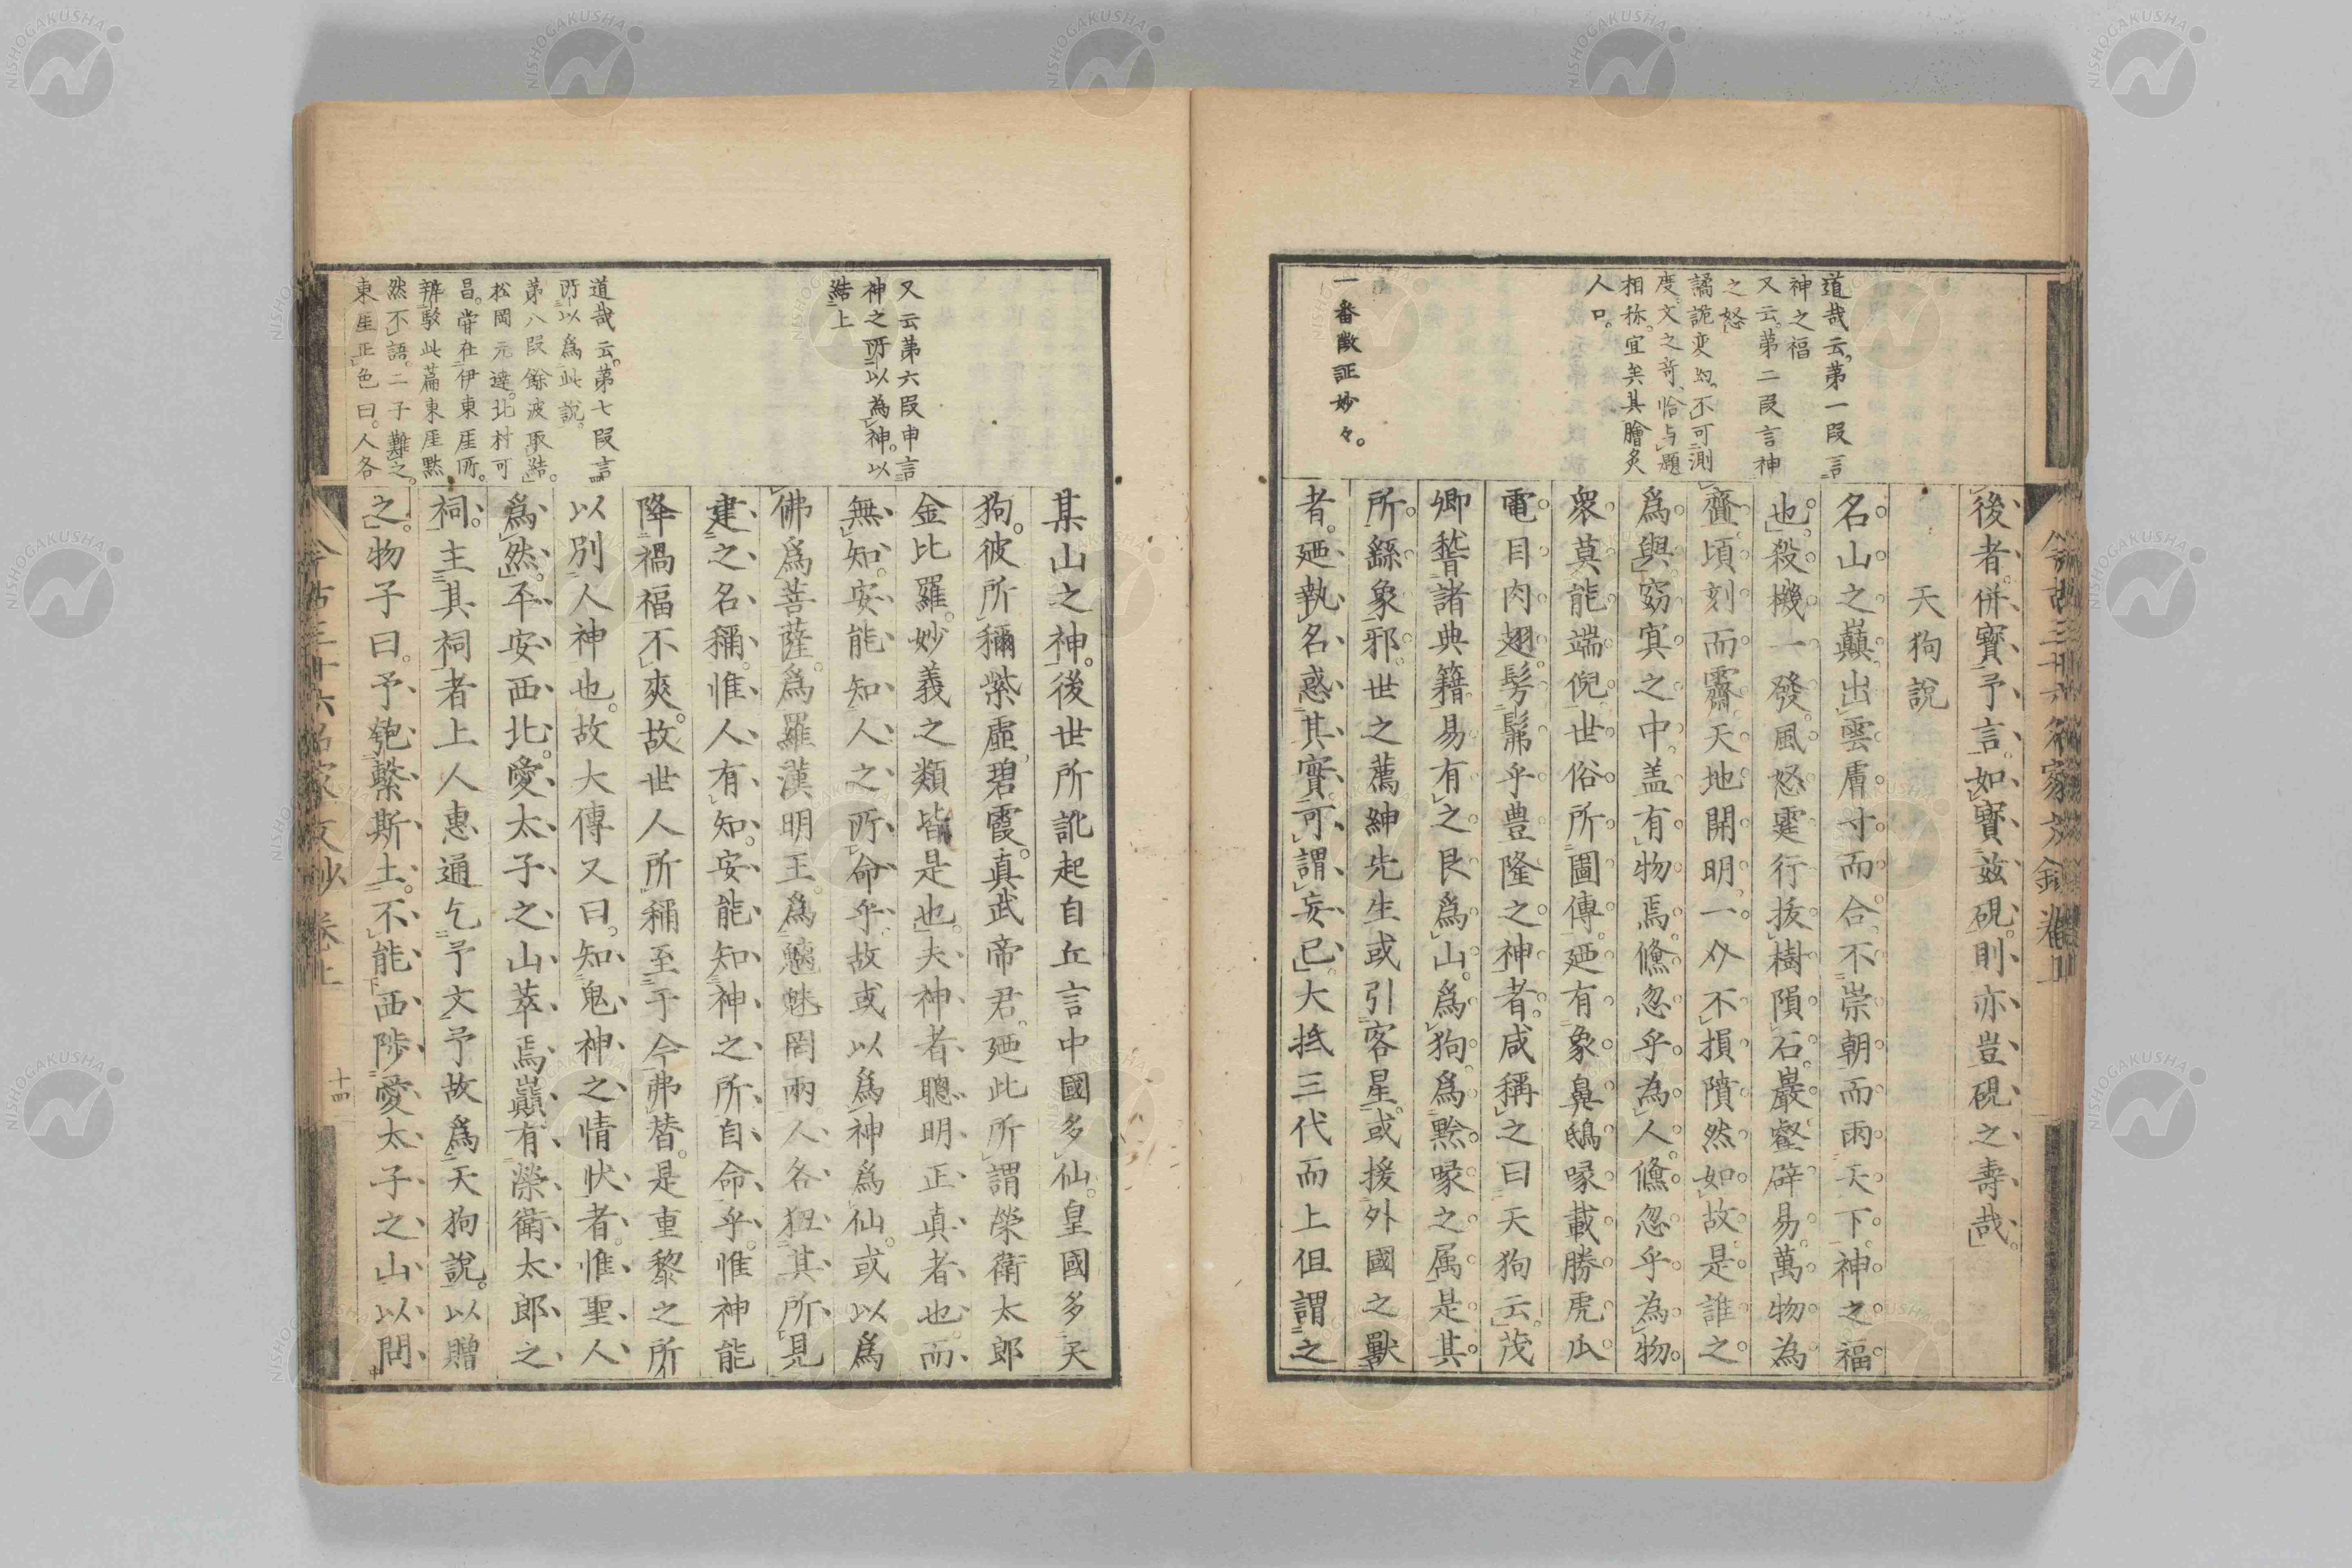 道哉云。第一段言
神之福
又云。第二段言神
之怒
譎詭変幻。不可測
度。文之奇。恰与題
相称。宜矣其膾炙
人口。
一番徴証妙々。
後者。併寶予言。如寶茲硯。則亦豈硯之壽哉。
天狗說
名山之巓。出雲膚寸而合。不崇朝而雨天下。神之福
也。殺機一發。風怒霆行。拔樹隕石。巖壑辟易。萬物為
齏。頃刻而霽。天地開明。一分不損。隤然如故。是誰之
爲與。窈冥之中。盖有物焉。儵忽乎為人。儵忽乎為物。
衆莫能端倪。世俗所圖傳。廼有象鼻鴟喙。載勝虎爪。
電目肉翅。髣髴乎豊隆之神者。咸稱之曰天狗云。茂
卿嵆諸典籍。易有之。艮爲山。爲狗。爲黔喙之属。是其
所繇象邪。世之薦紳先生。或引客星。或援外國之獸
者。廼執名惑其實。可謂妄已。大抵三代而上。但謂之
今古三十六名家文鈔 卷上
又云第六段申言
神之所以為神。以
結上
道哉云。第七段言
所以爲此說。
第八段餘波取結。
松岡元達。北村可
昌。嘗在伊東厓所。
辨駁此篇東厓黙
然不語。二子難之。
東厓正色曰。人各
某山之神。後世所訛。起自丘言。中國多仙。皇國多天
狗。彼所稱紫虛。碧霞。真武帝君。廼此所謂榮衛太郎
金比羅。妙義之類皆是也。夫神者聰明正真者也。而
無知。安能知人之所命乎。故或以爲神爲仙。或以爲
佛爲菩薩。爲羅漢明王。爲魑魅罔兩。人各狃其所見
建之名稱。惟人有知。安能知神之所自命乎。惟神能
降禍福不爽。故世人所稱至于今弗替。是重黎之所
以別人神也。故大傳又曰。知鬼神之情狀者。惟聖人
爲然。平安西北。愛太子之山萃焉。巓有榮衛太郎之
祠。主其祠者上人惠通乞予文。予故爲天狗說。以贈
之。物子曰。予匏繫斯土。不能西陟愛太子之山以問
今古三十六名家文鈔 卷上
十四